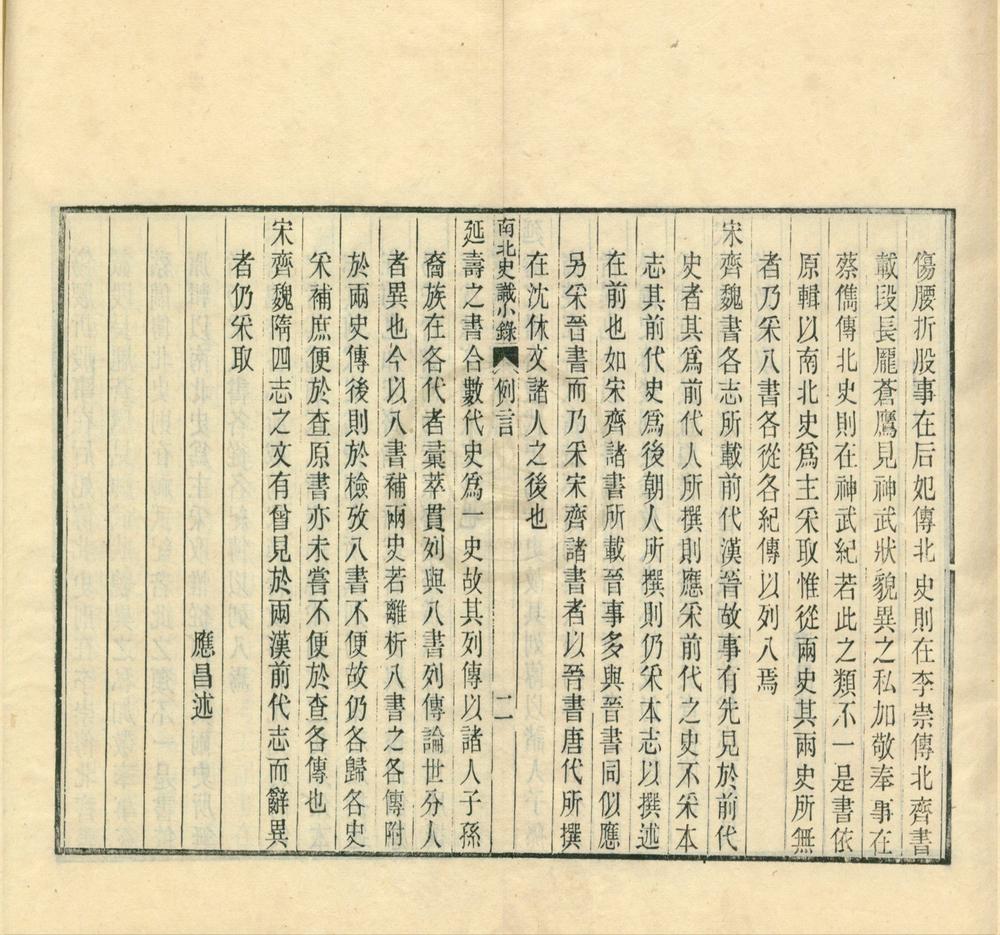 傷腰折股事在后妃傳北史則在李崇傳北齊書
載段長龐蒼鷹見神武狀貌異之私加敬奉事在
蔡儁傳北史則在神武紀若此之類不一是書依
原輯以南北史爲主采取惟從兩史其兩史所無
者乃采八書各從各紀傳以列入焉
宋齊魏書各志所載前代漢晉故事有先見於前代
史者其爲前代人所撰則應采前代之史不采本
志其前代史爲後朝人所撰則仍采本志以撰述
在前也如宋齊諸書所載晉事多與晉書同似應
另采晉書而乃采宋齊諸書者以晉書唐代所撰
在沈休文諸人之後也
南北史識小錄 例言 二
延壽之書合數代史爲一史故其列傳以諸人子孫
裔族在各代者彙萃貫列與八書列傳論世分人
者異也今以八書補兩史若離析八書之各傳附
於兩史傳後則於檢攷八書不便故仍各歸各史
采補庶便於查原書亦未嘗不便於查各傳也
宋齊魏隋四志之文有曾見於兩漢前代志而辭異
者仍采取
應昌述